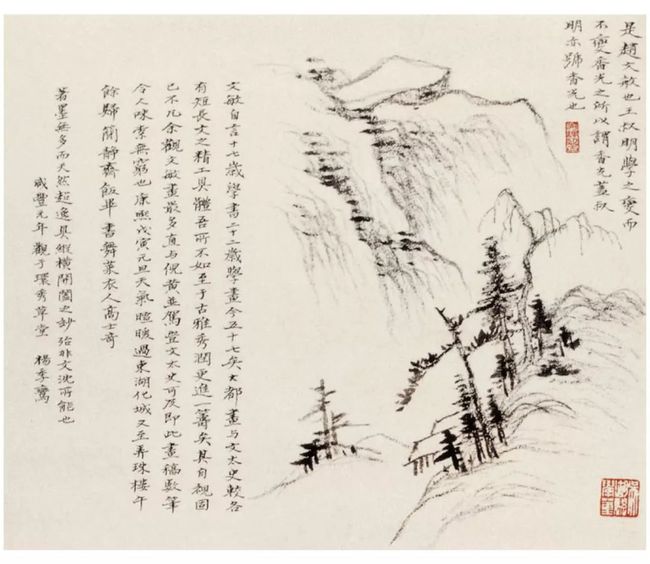 是趙文敏也王叔明學之變而
不變香光之所以謂香光蓋叔
明亦號香光也
文敏自言十七歲學書二十二歲學畫今五十七矣大都畫與文太史較各
有短長文之精工具體吾所不如至于古雅秀潤更進一籌矣其自視固
已不凡余觀文敏畫最多直與倪黃並駕豈文太史可及即此畫稿數筆
令人味索無窮也康熙戊寅元旦天氣暄暖過東湖化城又至弄珠樓午
餘歸簡靜齋飯畢書舞菜衣人高士奇
著墨無多而天然超逸具縱橫開闔之妙殆非文沈所能也
咸豐元年觀于環秀草堂 楊季鸞